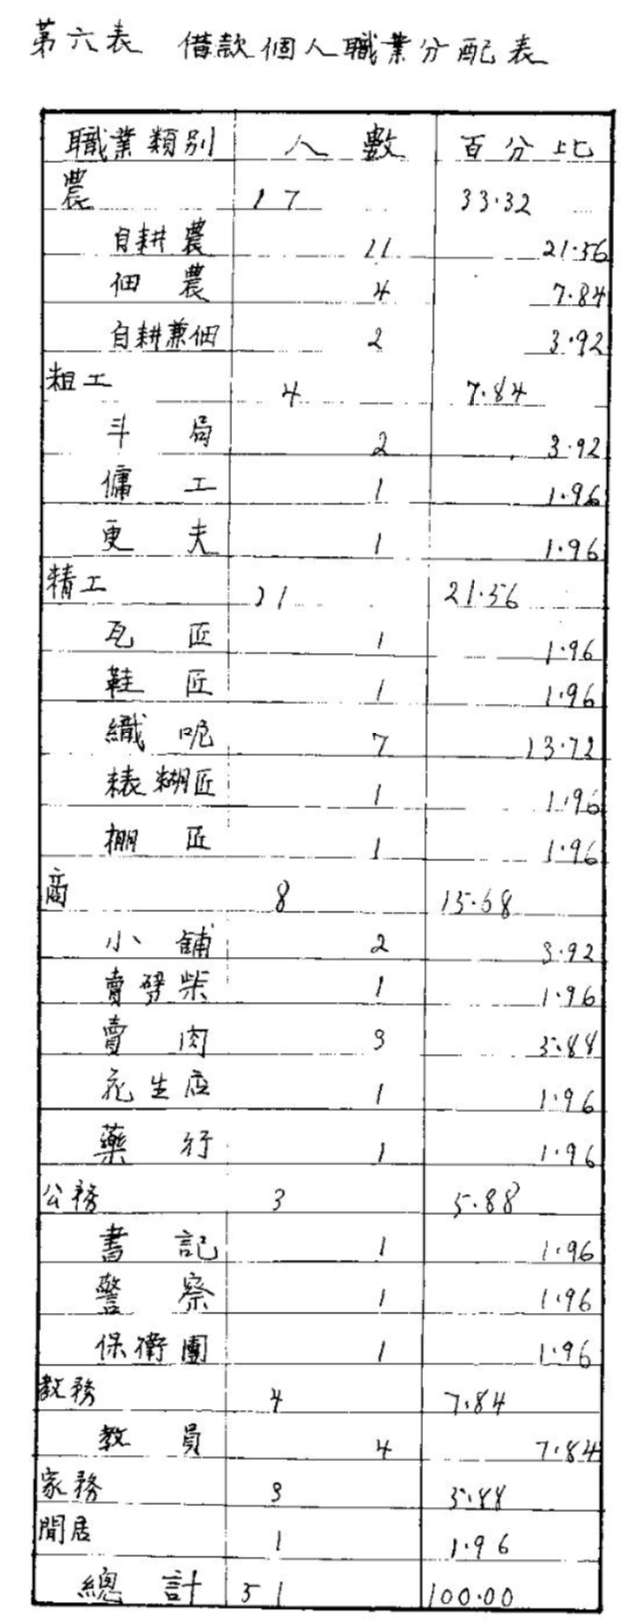 第六表 借款個人職業分配表
職業類別 人數 百分比
農 17 33.32
自耕農 11 21.56
佃農 4 7.84
自耕兼佃 2 3.92
粗工 4 7.84
斗局 2 3.92
傭工 1 1.96
更夫 1 1.96
精工 21.56
瓦匠 1 1.96
鞋匠 1 1.96
織呢 7 13.72
裱糊匠 1 1.96
棚匠 1 1.96
商 8 15.68
小舖 2 3.92
賣劈柴 1 1.96
賣肉 3 5.88
花生店 1 1.96
藥行 1 1.96
公務 3 5.88
書記 1 1.96
警察 1 1.96
保衛團 1 1.96
教務 4 7.84
教員 4 7.84
家務 3 5.88
閒居 1 1.96
總計 51 100.00